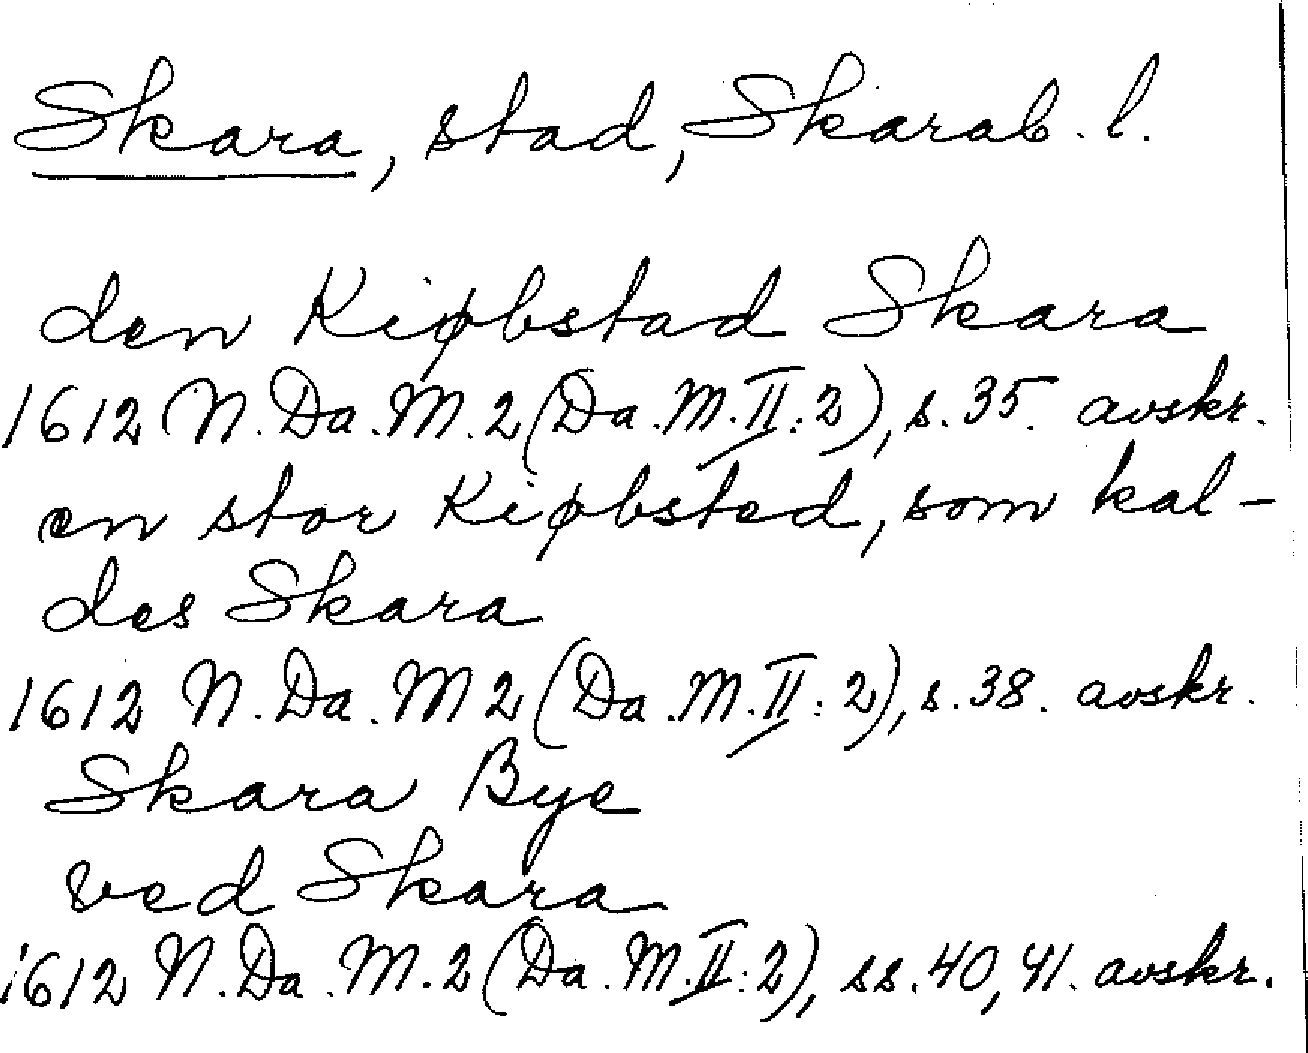 Skara, stad, Skarab. l.
den Kiøbstad Skara
1612 N. Da. M. 2 (Da. M. II: 2), s. 35. avskr.
en stor Kiøbsted, som kal-
des Skara
1612 N. Da. M 2 (Da. M. II: 2), s. 38. avskr.
Skara Bye
ved Skara
1612 N. Da. M. 2 (Da. M. II: 2), ss. 40, 41. avskr.